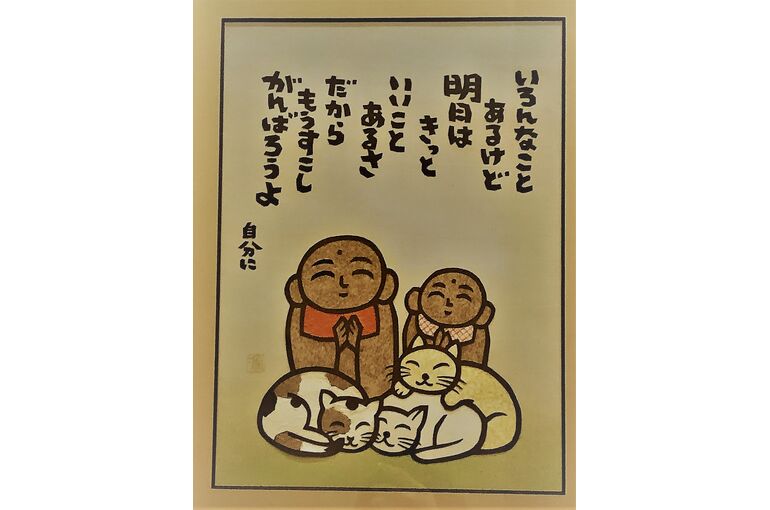 いろんなこと
あるけど
明日は
きっと
いいこと
あるさ
だから
もうすこし
がんばろうよ
自分に